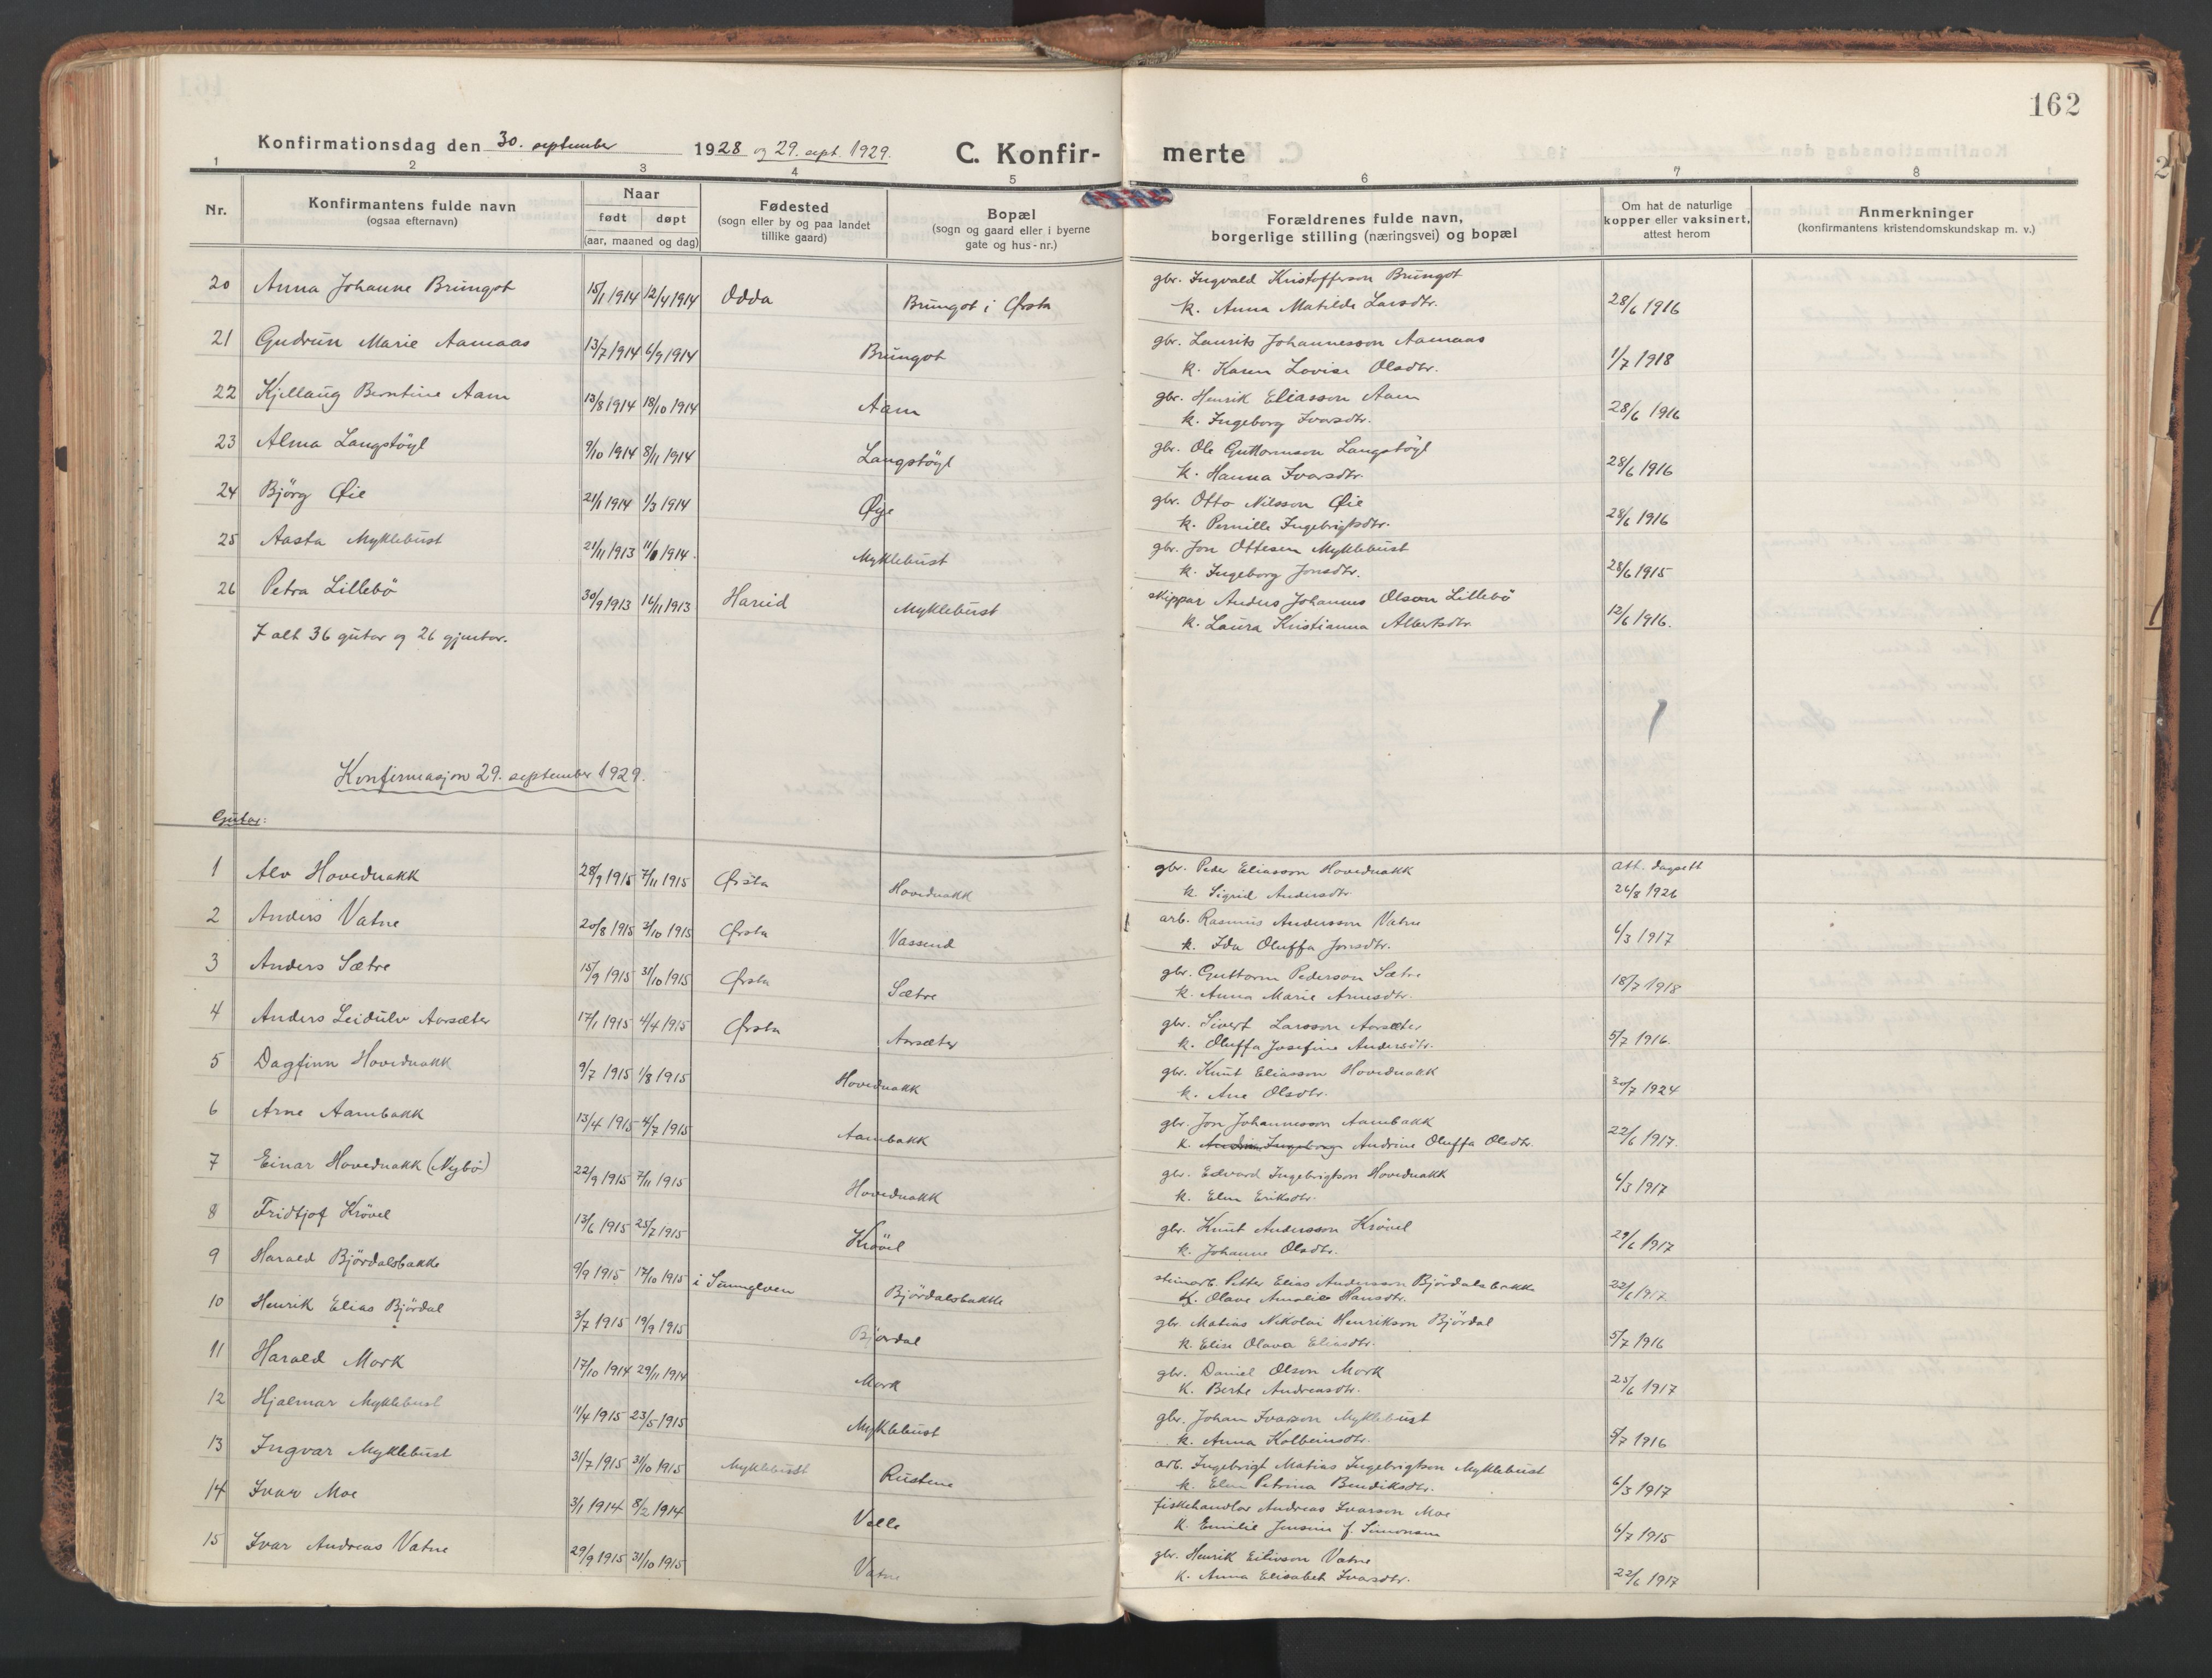 162
Konfirmationsdag den 30. september 1928 og 29. sept. 1929. C. Konfir- merte
1 2 3 4 5 6 7 8
Nr.
Konfirmantens fulde navn
(ogsaa efternavn)
Naar
født døpt
(aar, maaned og dag)
Fødested
(sogn eller by og paa landet
tillike gaard)
Bopæl
(sogn og gaard eller i byerne
gate og hus-nr.)
Forældrenes fulde navn,
borgerlige stilling (næringsvei) og bopæl
Om hat de naturlige
kopper eller vaksinert,
attest herom
Anmerkninger
(konfirmantens kristendomskundskap m. v.)
20 Anna Johanne Brungot 15/1 1914 12/4 1914 Odda Brungot i Ørsta gbr. Ingvald Kristofferson Brungot
k. Anna Matilde Larsdtr. 28/6 1916
21 Gudrun Marie Aamaas 13/7 1914 6/9 1914 Brungot gbr. Laurits Johannesson Aamaas
k. Karen Lovise Olsdtr. 1/7 1918
22 Kjellaug Berntine Aam 13/8 1914 18/10 1914 Aam gbr. Henrik Eliasson Aam
k. Ingeborg Ivarsdtr. 28/6 1916
23 Alma Langstöyl 9/10 1914 8/11 1914 Langstöyl gbr. Ole Guttormson Langstöyl
k. Hanna Ivarsdtr. 28/6 1916
24 Björg Øie 21/1 1914 1/3 1914 Øye gbr. Otto Nilsson Øie
k. Pernille Ingebrigtsdtr. 28/6 1916
25 Aasta Myklebust 21/11 1913 1914. Myklebust gbr. Jon Ottesen Myklebust
k. Ingeborg Jonsdtr. 28/6 1915
26 Petra Lillebö 30/9 1913 16/11 1913 Hareid Myklebust skippar Anders Johannes Olson Lillebö
k. Laura Kristianna Albertsdtr. 12/6 1916.
I alt 36 gutar og 26 gjentor.
Konfirmasjon 29. september 1929.
Gutar:
1 Alv Hovednakk 28/9 1915 7/11 1915 Ørsta Hovednakk gbr. Peder Eliasson Hovednakk att. dagsett
k. Sigrid Andersdtr. 26/8 1926
2 Anders Vatne 20/8 1915 3/10 1915 Ørsta Vassend arb. Rasmus Andersson Vatne
k. Ida Oluffa Jonsdtr. 6/3 1917
3 Anders Sætre 15/9 1915 31/10 1915 Ørsta Sætre gbr. Guttorm Pederson Sætre
k. Anna Marie Arnesdtr. 18/7 1918
4 Anders Leidulv Aarsæter 17/1 1915 4/4 1915 Ørsta Aarsæter gbr. Sivert Larsson Aarsæter
k. Oluffa Josefine Andersdtr. 5/7 1916.
5 Dagfinn Hovednakk 9/7 1915 1/8 1915 Hovednakk gbr. Knut Eliasson Hovednakk
k. Ane Olsdtr. 30/7 1924
6 Arne Aambakk 13/4 1915 4/7 1915 Aambakk gbr. Jon Johannesson Aambakk
k. Andrine Oluffa Olsdtr. 22/6 1917.
7 Einar Hovednakk (Nybö) 22/9 1915 7/11 1915 Hovednakk gbr. Edvard Ingebrigtson Hovednakk
k. Elen Eriksdtr. 6/3 1917
8 Fridtjof Krövel 13/6 1915 25/7 1915 Krövel gbr. Knut Andersson Krövel
k. Johanne Olsdtr. 29/6 1917
9 Harald Björdalsbakke 9/9 1915 17/10 1915 i Sunnylven Björdalsbakke steinarb. Petter Elias Andersson Björdalsbakke
k. Olave Amalie Hansdtr. 22/6 1917
10 Henrik Elias Björdal 3/7 1915 19/9 1915 Björdal gbr. Matias Nikolai Henrikson Björdal
k. Elise Olava Eliasdtr. 5/7 1916
11 Harald Mork 17/10 1914 29/11 1914 Mork gbr. Daniel Olson Mork
k. Berte Andreasdtr. 25/6 1917
12 Hjalmar Myklebust 11/4 1915 23/5 1915 Myklebust gbr. Johan Ivarson Myklebust
k. Anna Kolbeinsdtr. 5/7 1916
13 Ingvar Myklebust 31/7 1915 31/10 1915 Myklebust Rustene arb. Ingebrigt Matias Ingebrigtson Myklebust
k. Elen Petrina Bendiksdtr. 6/3 1917
14 Ivar Moe 3/1 1914 8/2 1914 Velle fiskehandlar Andreas Ivarson Moe
k. Emilie Jensine f. Simonsen 6/7 1915
15 Ivar Andreas Vatne 29/9 1915 31/10 1915 Vatne gbr. Henrik Eilivson Vatne
k. Anna Elisabet Ivarsdtr. 22/6 1917